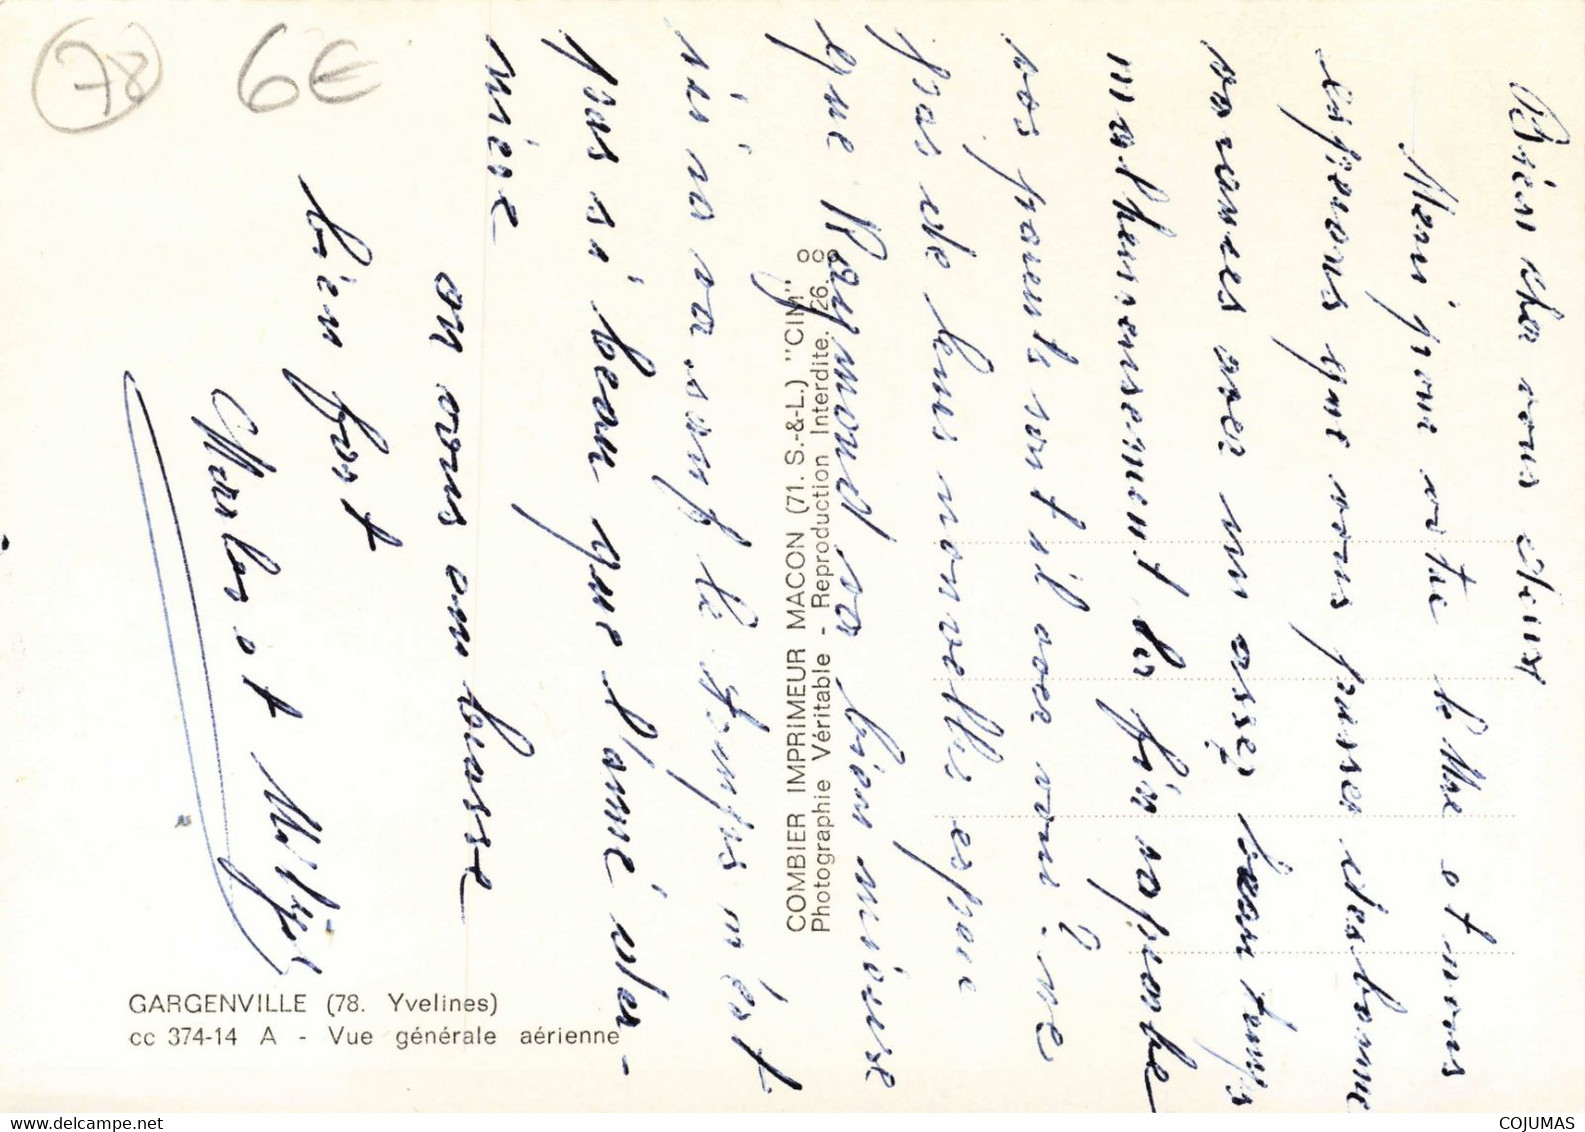 Bien cher vous deux
Merci pour votre lettre et nous
espérons que vous passer des bonne
vacanses avec un assez beau temps
malheureusement
vos parents sont il avec vous? ne
pas de leurs nouvelles espère
que Raymond va bien mieux
ici sa va sauf le temps n'est
pas si beau que l'anné der-
nière
on vous embrasse
bien fort
et
78
6€
COMBIER IMPRIMEUR MACON (71. S.-&-L.) "CIM"
Photographie Véritable - Reproduction Interdite.
GARGENVILLE (78. Yvelines)
cc 374-14 A - Vue générale aérienne
COJUMAS